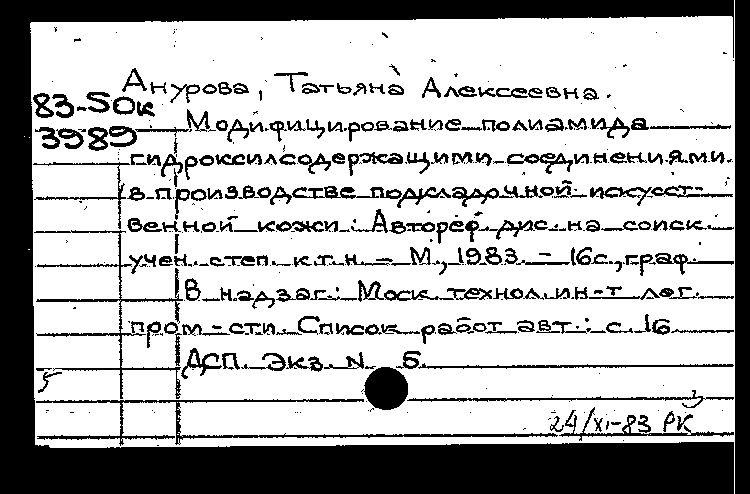 Анурова, Татьяна Алексеевна.
83-50к
3989
Модифицирование полиамида
гидроксилсодержащими соединениями
в производстве подкладочной искусст-
венной кожи: Автореф. дис. на соиск.
учен. степ. к.т.н. - М., 1983. - 16с., граф.
В надзаг.: Моск. технол. ин-т лег.
пром-сти. Список работ авт.: с. 16
ДСП. Экз. N 5.
24/XI-83 РК